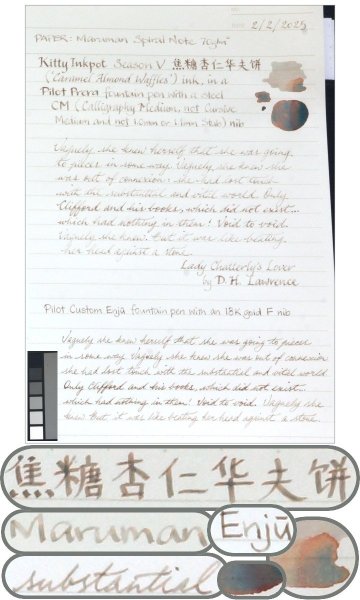 2/2/2025
PAPER: Maruman Spiral Note 70g/m²
Kitty Inkpot Season V 焦糖杏仁华夫饼
('Caramel Almond Waffles') ink, in a
Pilot Prera fountain pen with a steel
CM (Calligraphy Medium, not Cursive
Medium and not 1.0mm or 1.1mm Stub) nib
Vaguely she knew herself that she was going
to pieces in some way. Vaguely she knew she
was out of connexion: she had lost touch
with the substantial and vital world. Only
Clifford and his books, which did not exist...
which had nothing in them! Void to void.
Vaguely she knew. But it was like beating
her head against a stone.
Lady Chatterly's Lover
by D. H. Lawrence
Pilot Custom Enjū fountain pen with an 18K gold F nib
Vaguely she knew herself that she was going to pieces
in some way. Vaguely she knew she was out of connexion
she had lost touch with the substantial and vital world.
Only Clifford and his books, which did not exist...
which had nothing in them! Void to void. Vaguely she
knew. But it was like beating her head against a stone.
焦糖杏仁华夫饼
Maruman
Enjū
substantial